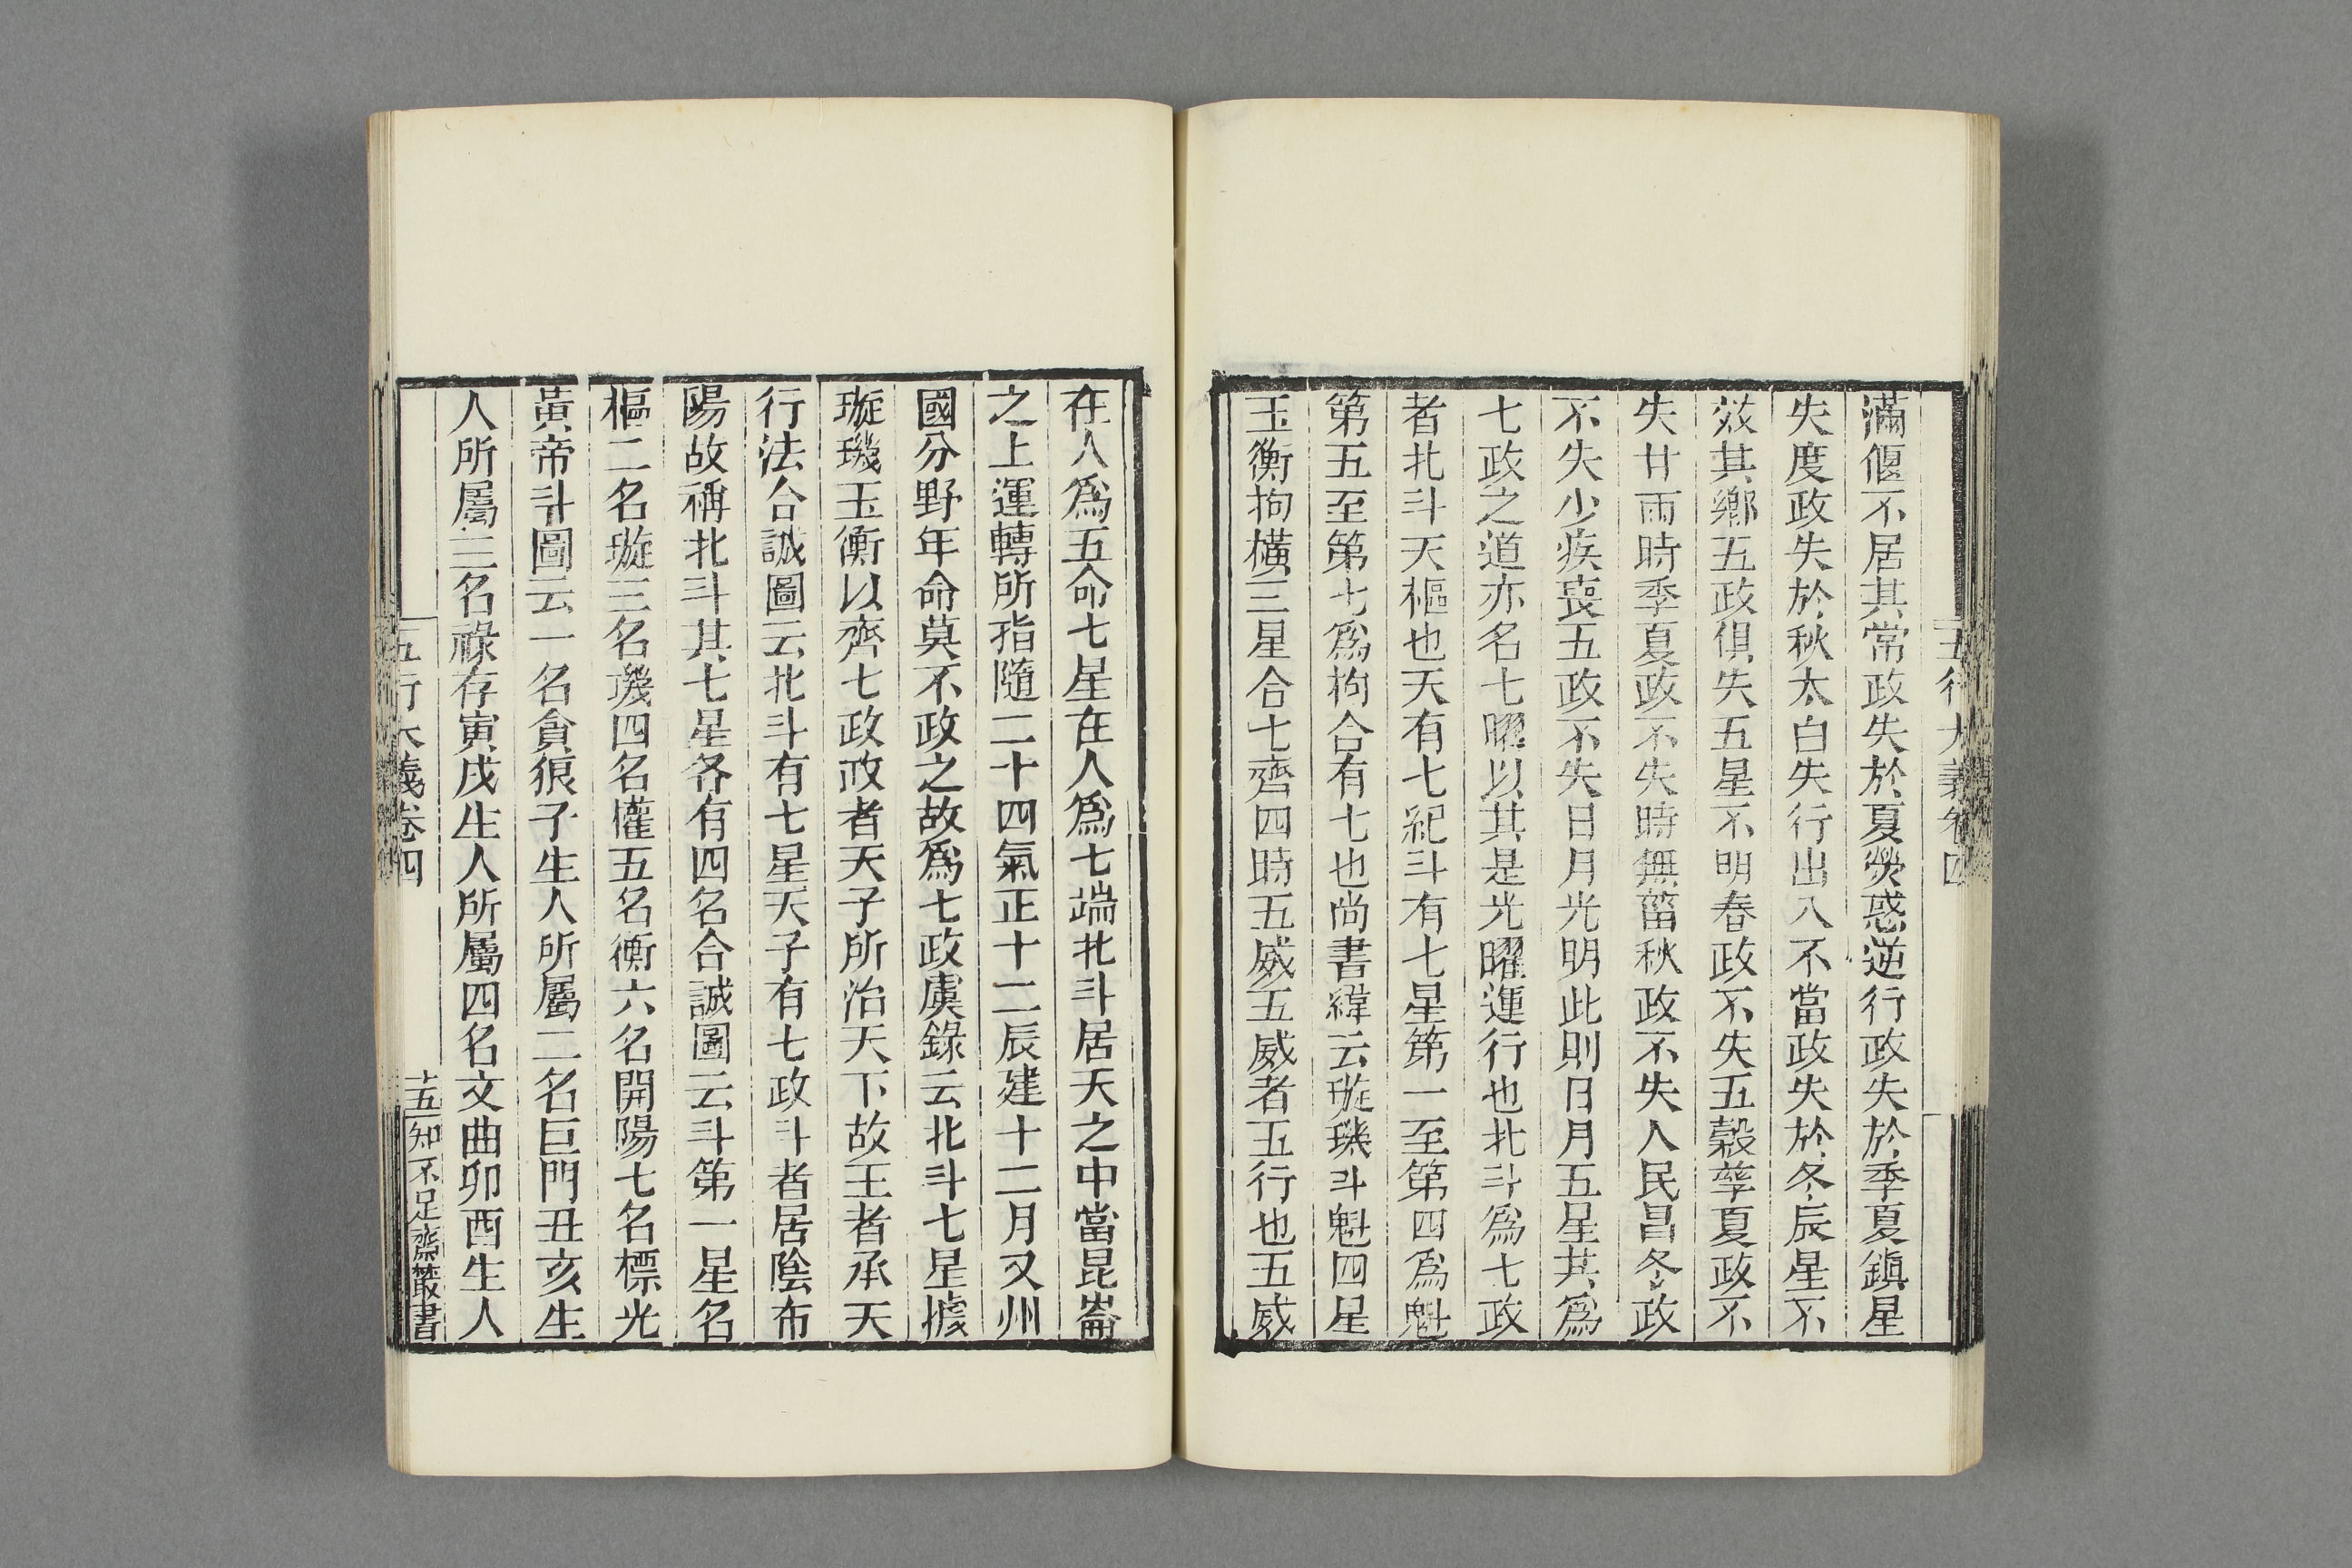 五行大義卷四
滿偃不居其常政失於夏熒惑逆行政失於季夏鎭星
失度政失於秋太白失行出入不當政失於冬辰星不
效其鄉五政俱失五星不明春政不失五穀孳夏政不
失甘雨時季夏政不失時無菑秋政不失人民昌冬政
不失少疾喪五政不失日月光明此則日月五星共爲
七政之道亦名七曜以其是光曜運行也北斗爲七政
者北斗天樞也天有七紀斗有七星第一至第四爲魁
第五至第七爲杓合有七也尚書緯云璇璣斗魁四星
玉衡拘橫三星合七齊四時五威五威者五行也五威
在人爲五命七星在人爲七端北斗居天之中當昆崙
之上運轉所指隨二十四氣正十二辰建十二月又州
國分野年命莫不政之故爲七政虞錄云北斗七星據
璇璣玉衡以齊七政政者天子所治天下故王者承天
行法合誠圖云北斗有七星天子有七政斗者居陰布
陽故稱北斗其七星各有四名合誠圖云斗第一星名
樞二名璇三名璣四名權五名衡六名開陽七名標光
黃帝斗圖云一名貪狼子生人所屬二名巨門丑亥生
人所屬三名祿存寅戌生人所屬四名文曲卯酉生人
五行大義卷四
十五
知不足齋叢書